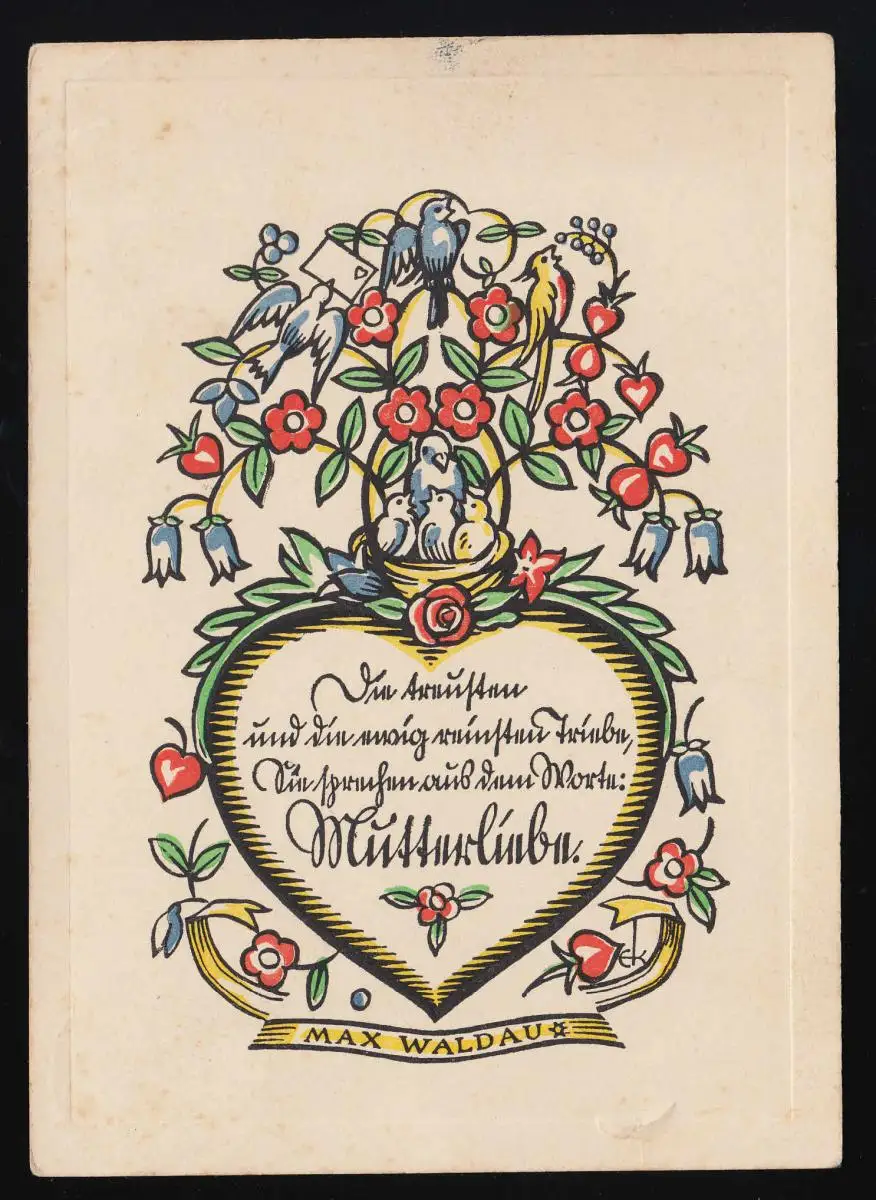 Die treusten
und die ewig reinsten Triebe,
Sie sprechen aus dem Worte:
Mutterliebe.
ek
MAX WALDAU